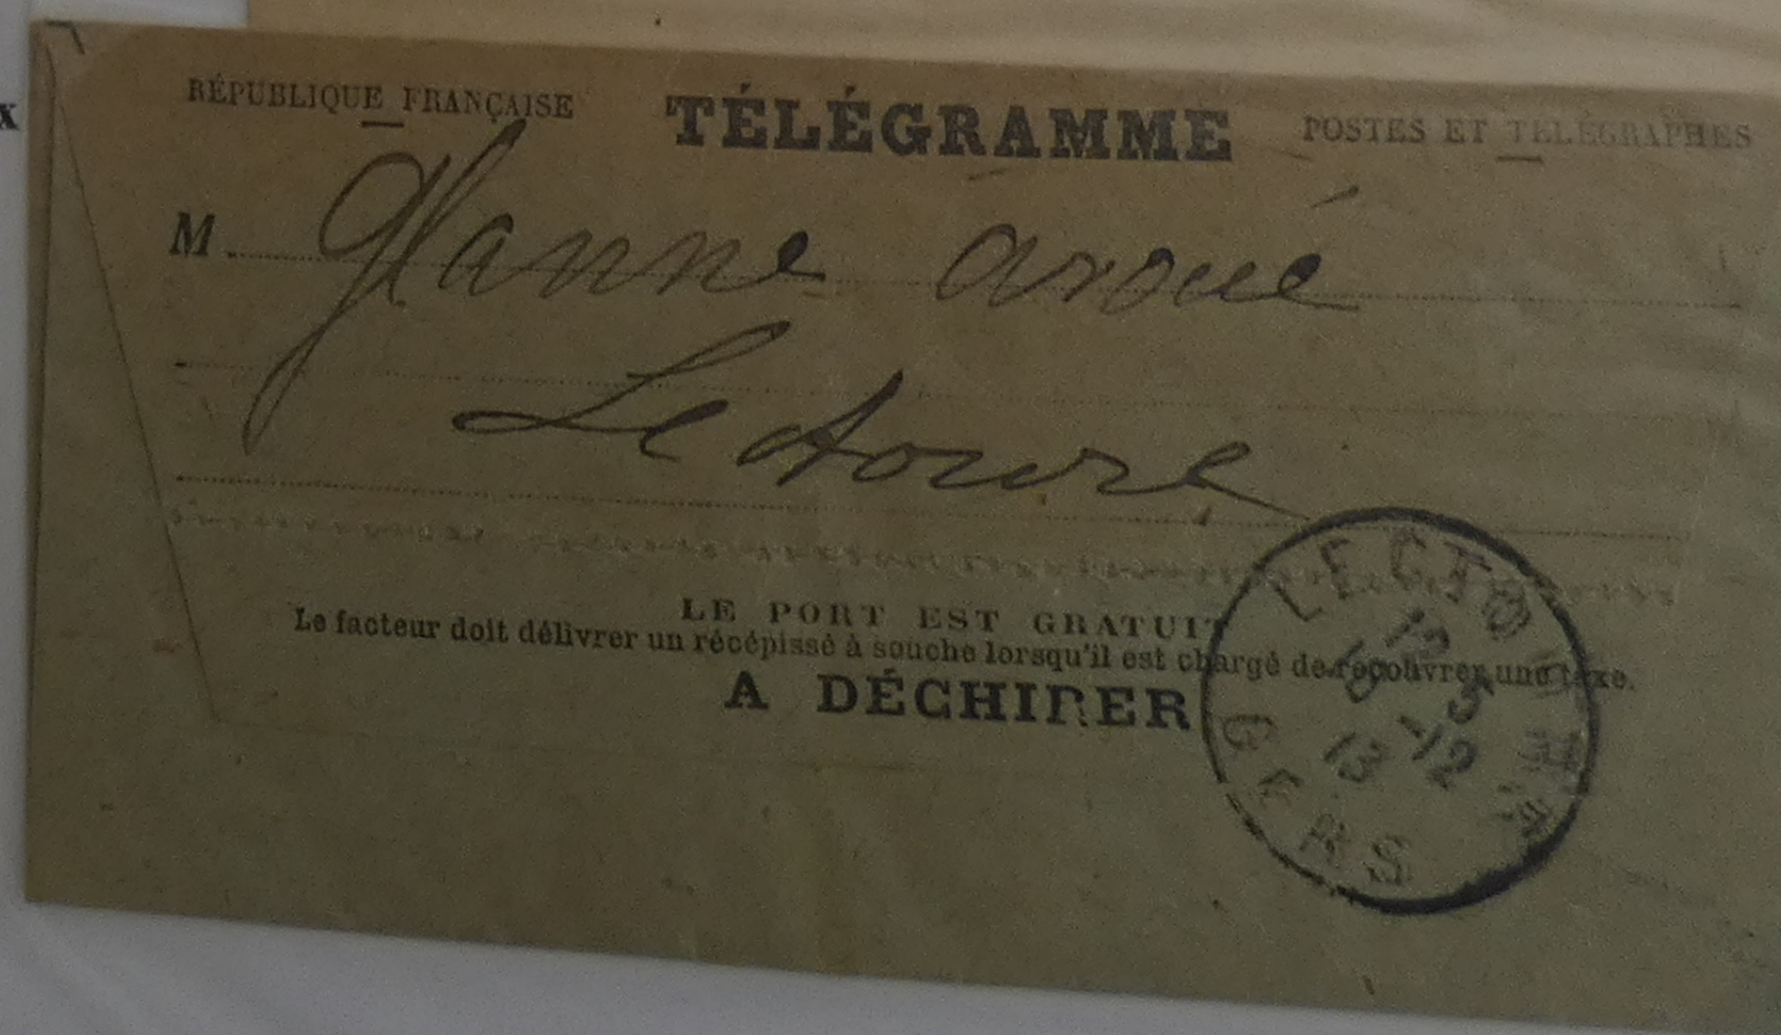 x
RÉPUBLIQUE FRANÇAISE
TÉLÉGRAMME
POSTES ET TÉLÉGRAPHES
M Glanne avoué
Lectoure
LE PORT EST GRATUIT
Le facteur doit délivrer un récépissé à souche lorsqu'il est chargé de recouvrer une taxe.
A DÉCHIRER
LECTOURE
12
5 1/2
13
GERS